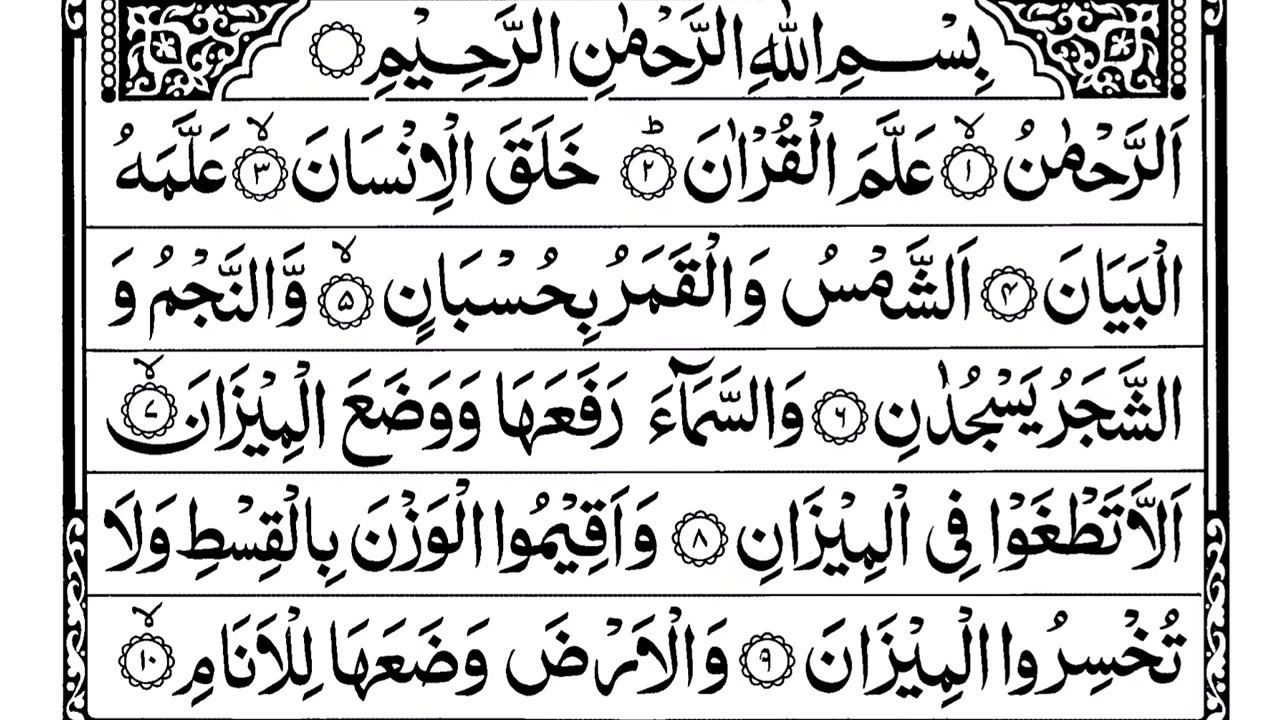 بِسْمِ اللّٰهِ الرَّحْمٰنِ الرَّحِيْمِ ۝
اَلرَّحْمٰنُ ۙ‏﴿۱﴾ عَلَّمَ الْقُرْاٰنَ ؕ‏﴿۲﴾ خَلَقَ الْاِنْسَانَ ۙ‏﴿۳﴾ عَلَّمَهُ
الْبَيَانَ ﴿۴﴾ اَلشَّمْسُ وَالْقَمَرُ بِحُسْبَانٍ ۙ‏﴿۵﴾ وَّالنَّجْمُ وَ
الشَّجَرُ يَسْجُدٰنِ ﴿۶﴾ وَالسَّمَآءَ رَفَعَهَا وَوَضَعَ الْمِيْزَانَ ۙ‏﴿۷﴾
اَلَّا تَطْغَوْا فِى الْمِيْزَانِ ﴿۸﴾ وَاَقِيْمُوا الْوَزْنَ بِالْقِسْطِ وَلَا
تُخْسِرُوا الْمِيْزَانَ ﴿۹﴾ وَالْاَرْضَ وَضَعَهَا لِلْاَنَامِ ۙ‏﴿۱۰﴾